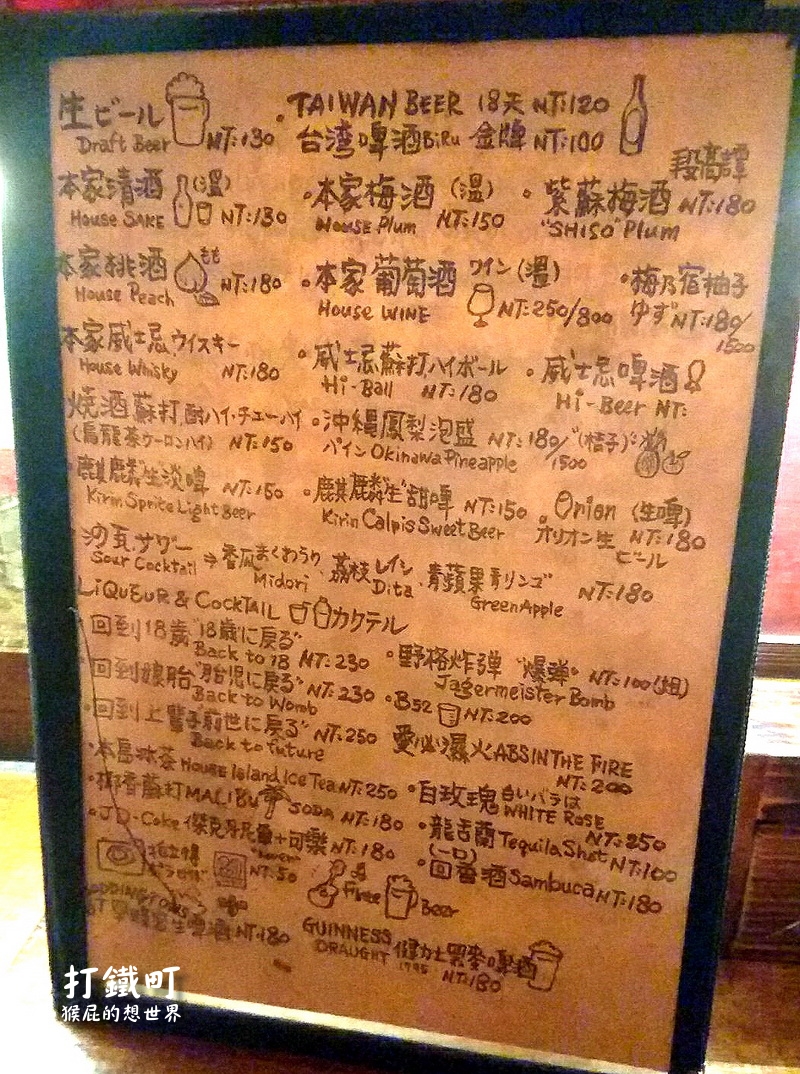 生ビール
Draft Beer NT:130
TAIWAN BEER 18天 NT:120
台湾啤酒BiRu 金牌 NT:100
段高譚
本家清酒(溫)
House SAKE NT:130
本家梅酒(溫)
House Plum NT:150
紫蘇梅酒 NT:180
"SHISO" Plum
本家桃酒 もも
House Peach NT:180
本家葡萄酒 ワイン(溫)
House WINE NT:250/800
梅乃宿柚子
ゆず NT:180/
1500
本家威士忌 ウイスキー
House Whisky NT:180
威士忌蘇打 ハイボール
Hi-Ball NT:180
威士忌啤酒
Hi-Beer NT:
燒酒蘇打 酎ハイ・チューハイ
(烏龍茶ウーロンハイ) NT:150
沖縄鳳梨泡盛 NT:180/
パイン Okinawa Pineapple 1500
(桔子)
麒麟"生"淡啤 NT:150
Kirin Sprite Light Beer
麒麟"生"甜啤 NT:150
Kirin Calpis Sweet Beer
Orion (生啤)
オリオン生 NT:180
ビール
サワー
Sour Cocktail ⇒ 香瓜まくわうり Midori、荔枝 レイシ Dita、青蘋果 青リンゴ Green Apple NT:180
LiQUEUR & COCKTAIL カクテル
回到18歲 "18歳に戻る"
Back to 18 NT:230
野格炸彈 "爆弾" NT:100(姐)
Jagermeister Bomb
回到娘胎 "胎児に戻る"
Back to Womb NT:230
B52 NT:200
回到上輩子 "前世に戻る"
Back to future NT:250
愛必瀑火 ABSINTHE FIRE
NT:200
本島冰茶 HOUSE Island Ice Tea NT:250
白玫瑰 白いバラは
WHITE ROSE
NT:250
椰香蘇打 MALIBU SODA NT:180
龍舌蘭 Tequila Shot NT:100
(一口)
JD-Coke 傑克丹尼爾+可樂 NT:180
回香酒 Sambuca NT:180
拍立得
NT:50
Flute
Beer
BODDINGTONS
NT:180
GUINNESS
DRAUGHT 健力士黑麥啤酒
NT:180
打鐵町
猴屁的想世界